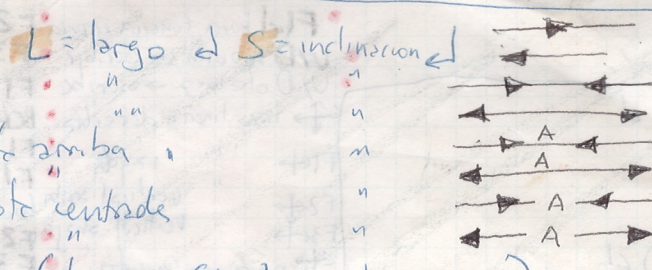 L = largo S = inclinacion
" "
" " "
arriba " A "
" A
centrada " A
" A